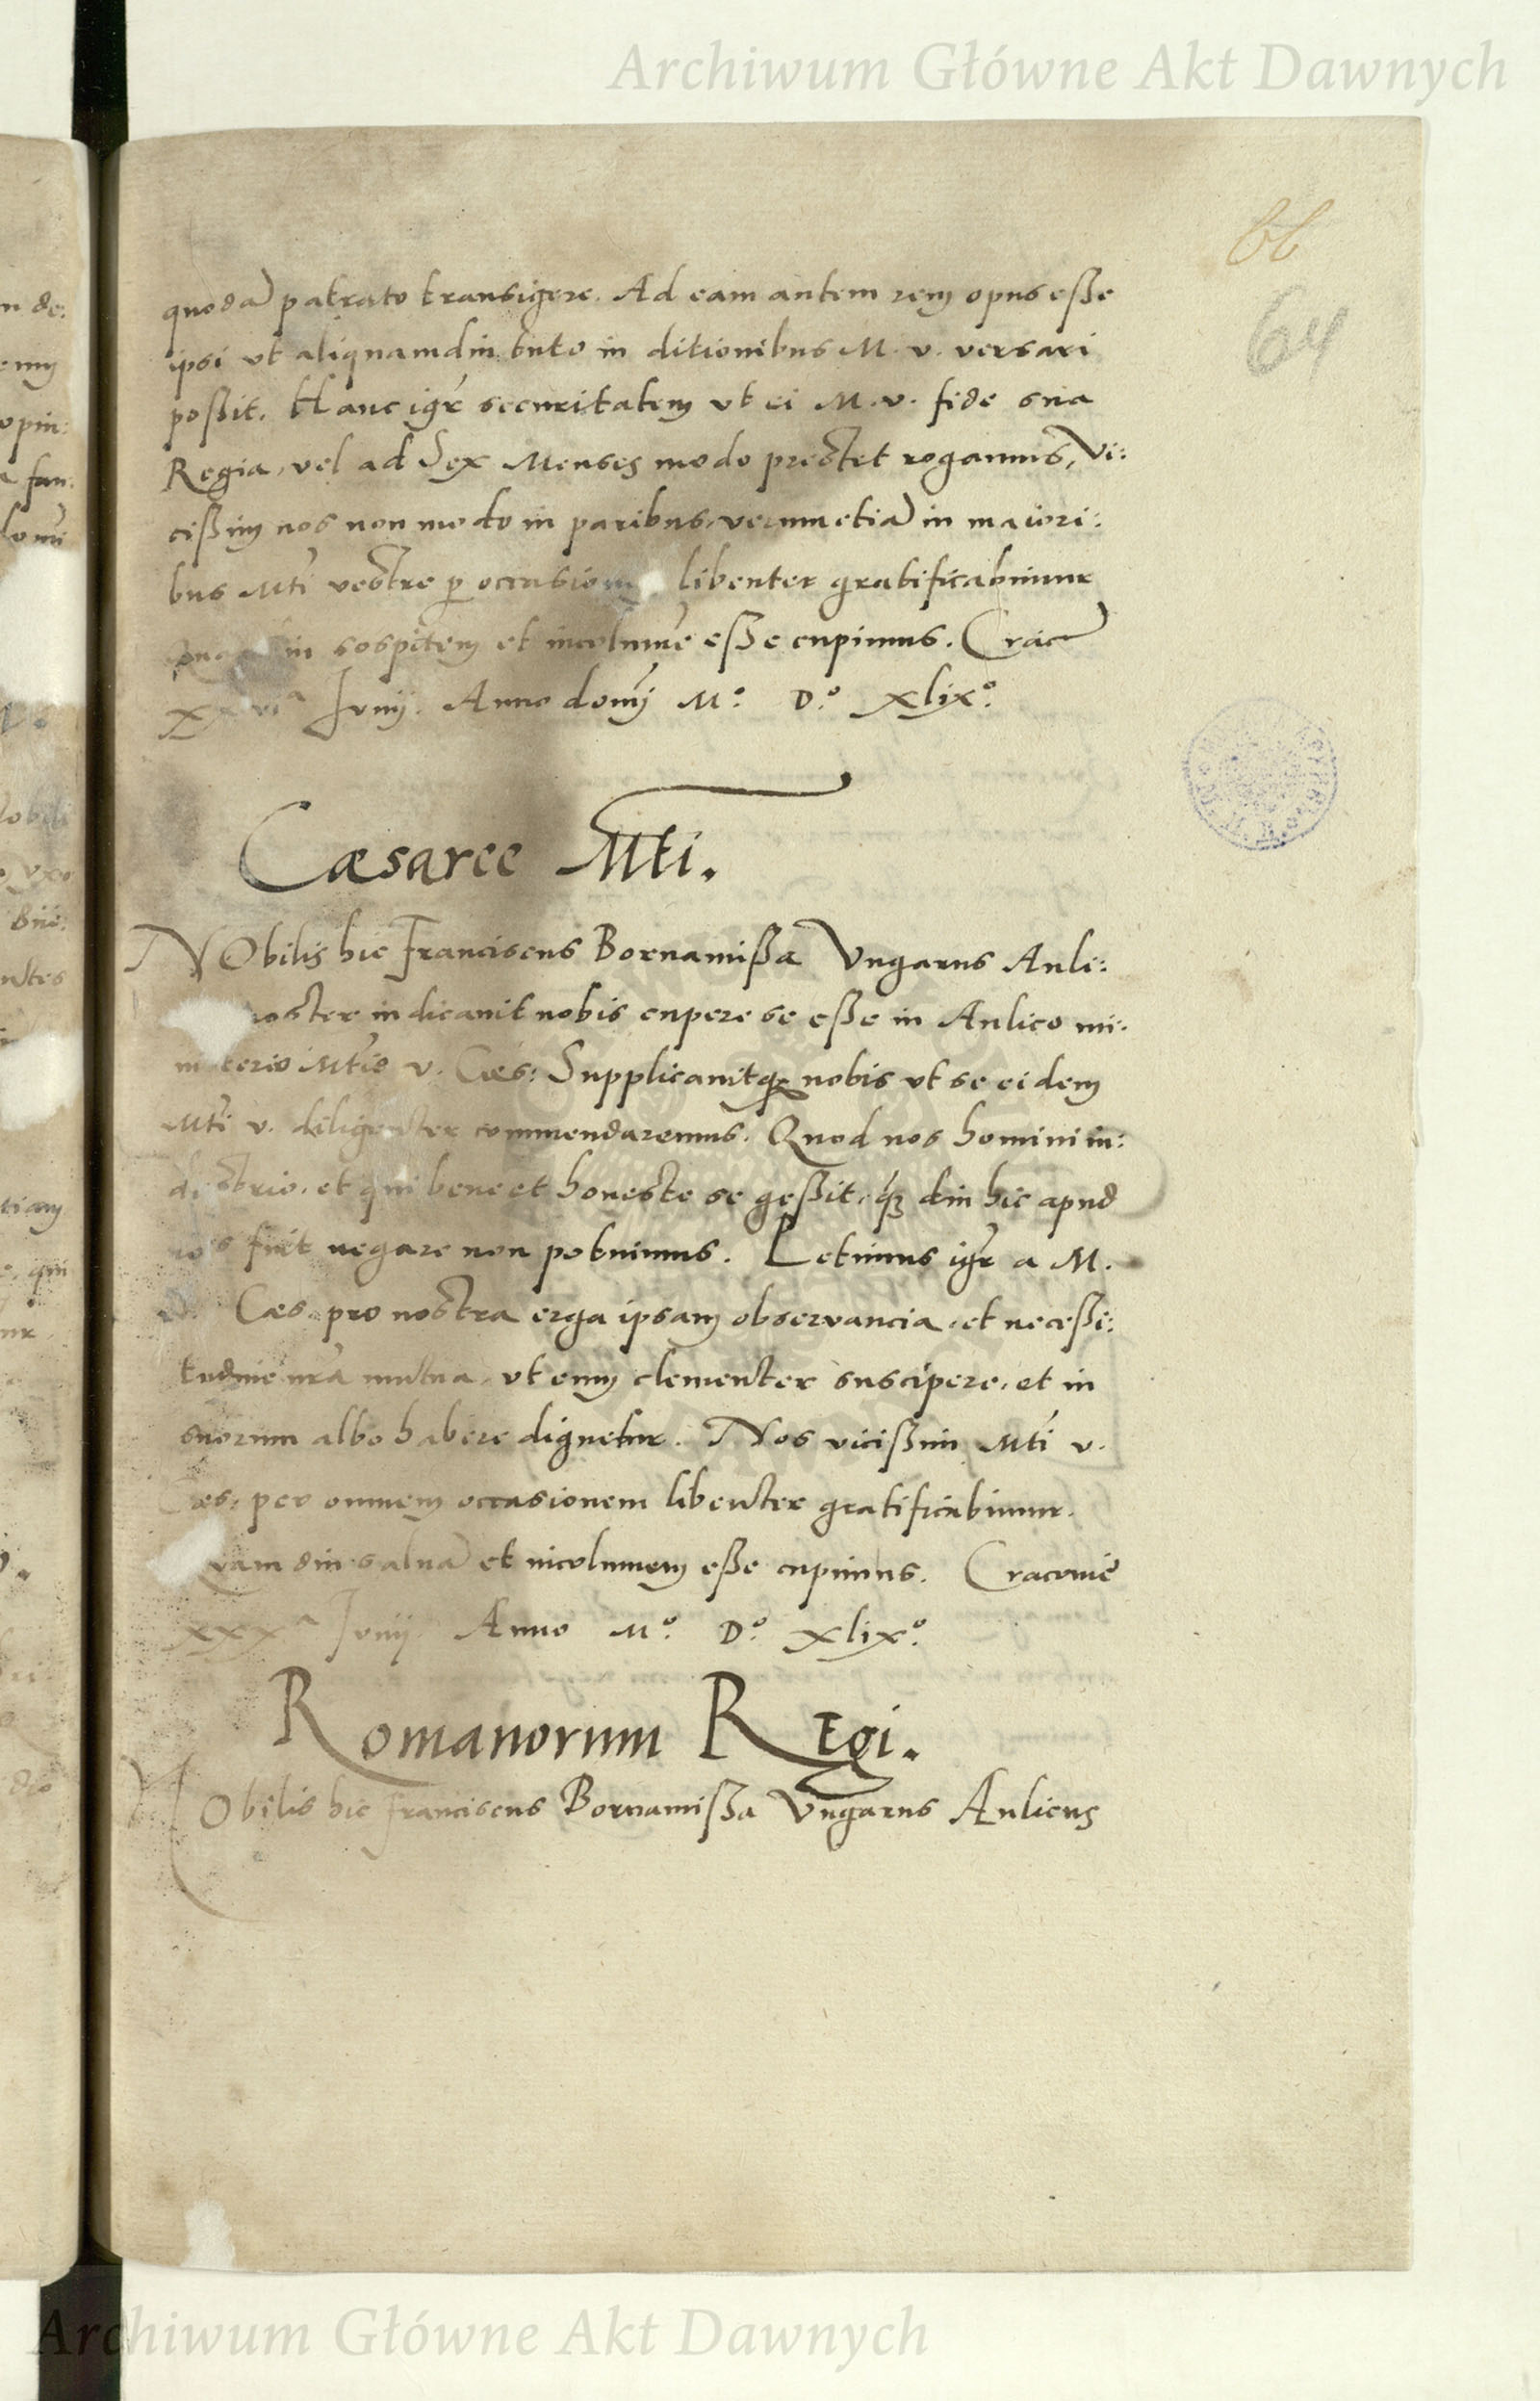 Archiwum Główne Akt Dawnych
66
64
quodā patrato transigere. Ad eam autem rem opus esse
ipsi ut aliquamdiu tuto in ditionibus M. v. versari
possit. Hanc igr̃ securitatem ut ei M. v. fide sua
Regia, vel ad Sex Menses modo prestet rogamus, Vi:
cissim nos non modo in paribus, verum etiā in maiori:
bus Mti vestre p occasionem libenter gratificabimur
sospitem et incolumē esse cupimus. Crac̄
Iunij. Anno domĩ M.º D.º xlix.º
Cæsaree Mti.
NObilis hic Franciscus Bornamissa Vngarus Auli:
noster indicauit nobis cupere se esse in Aulico mi:
nisterio Mtis v. Cæs: Supplicauitq3 nobis ut se eidem
Mti v. diligenter commendaremus. Quod nos homini in:
dustrio, et qui bene et honeste se gessit, q3 diu hic apud
nos fuit negare non potuimus. Petimus igr̃ a M.
v. Cæs. pro nostra erga ipsam observancia, et necessi:
tudine nrã mutua, ut eum clementer suscipere, et in
suorum albo habere dignetur. Nos vicissim Mti v.
Cæs: per omnem occasionem libenter gratificabimur.
Quam diu saluā et incolumem esse cupimus. Cracovie
xxxª Iunij Anno M.º D.º xlix.º
Romanorum Regi.
NObilis hic Franciscus Bornamissa Vngarus Aulicus
Archiwum Główne Akt Dawnych